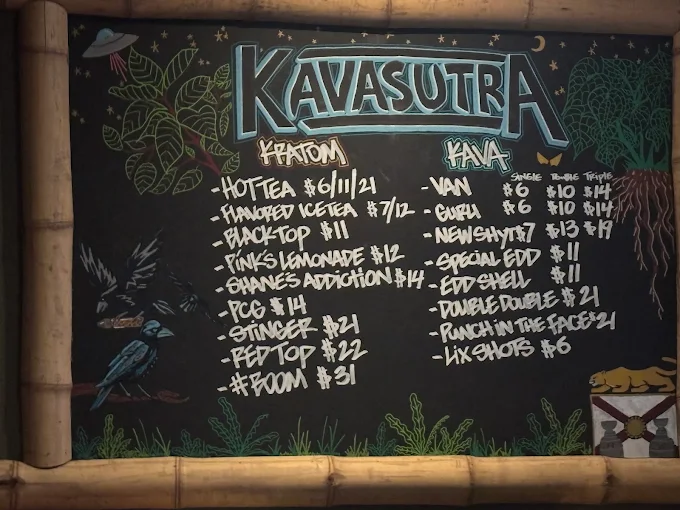 KAVASUTRA
KRATOM
- HOT TEA $6/11/21
- FLAVORED ICETEA $7/12
- BLACKTOP $11
- PINK'S LEMONADE $12
- SHANE'S ADDICTION $14
- PCG $14
- STINGER $21
- RED TOP $22
- #BOOM $31
KAVA
SINGLE DOUBLE TRIPLE
- VAN $6 $10 $14
- GURU $6 $10 $14
- NEWSHYT $7 $13 $19
- SPECIAL EDD $11
- EDD SHELL $11
- DOUBLE DOUBLE $21
- PUNCH IN THE FACE $21
- LIX SHOTS $6